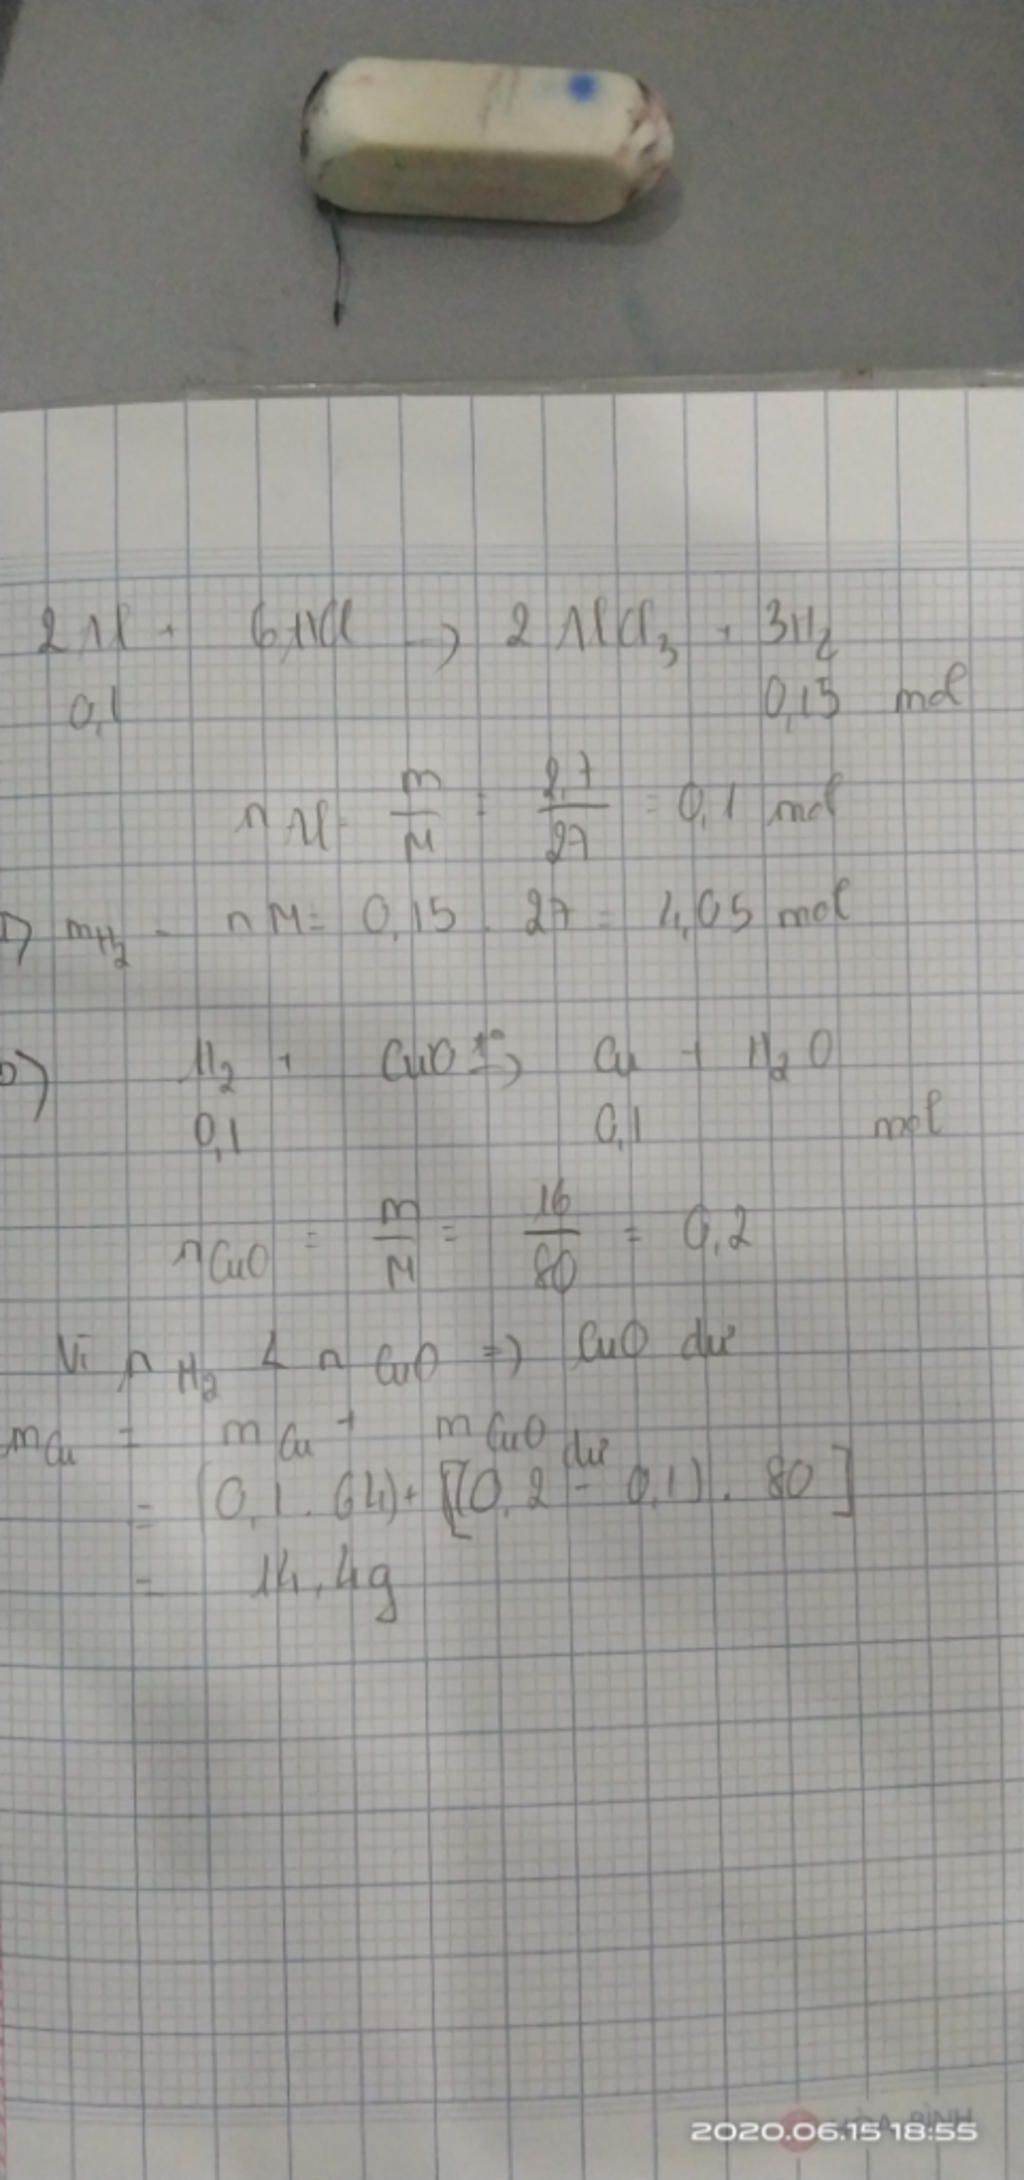 2Al + 6HCl → 2AlCl₃ + 3H₂
0,1 0,15 mol
nAl = m/M = 2,7/27 = 0,1 mol
mH₂ = nM = 0,15 . 27 = 4,05 mol
b) H₂ + CuO t°→ Cu + H₂O
0,1 0,1 mol
nCuO = m/M = 16/80 = 0,2
Vì nH₂ < nCuO => CuO dư
mCu = mCu + mCuO dư
= (0,1 . 64) + [(0,2 - 0,1) . 80]
= 14,4g
2020.06.15 18:55